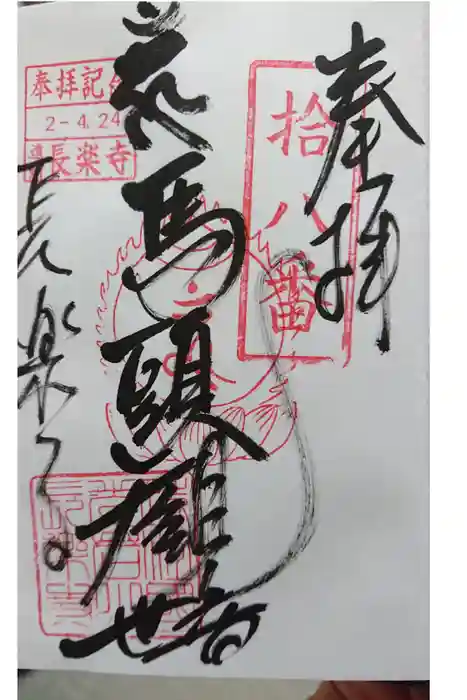 奉拝
拾八番
馬頭観世音
長楽寺
奉拝記念
2-4.24
長楽寺